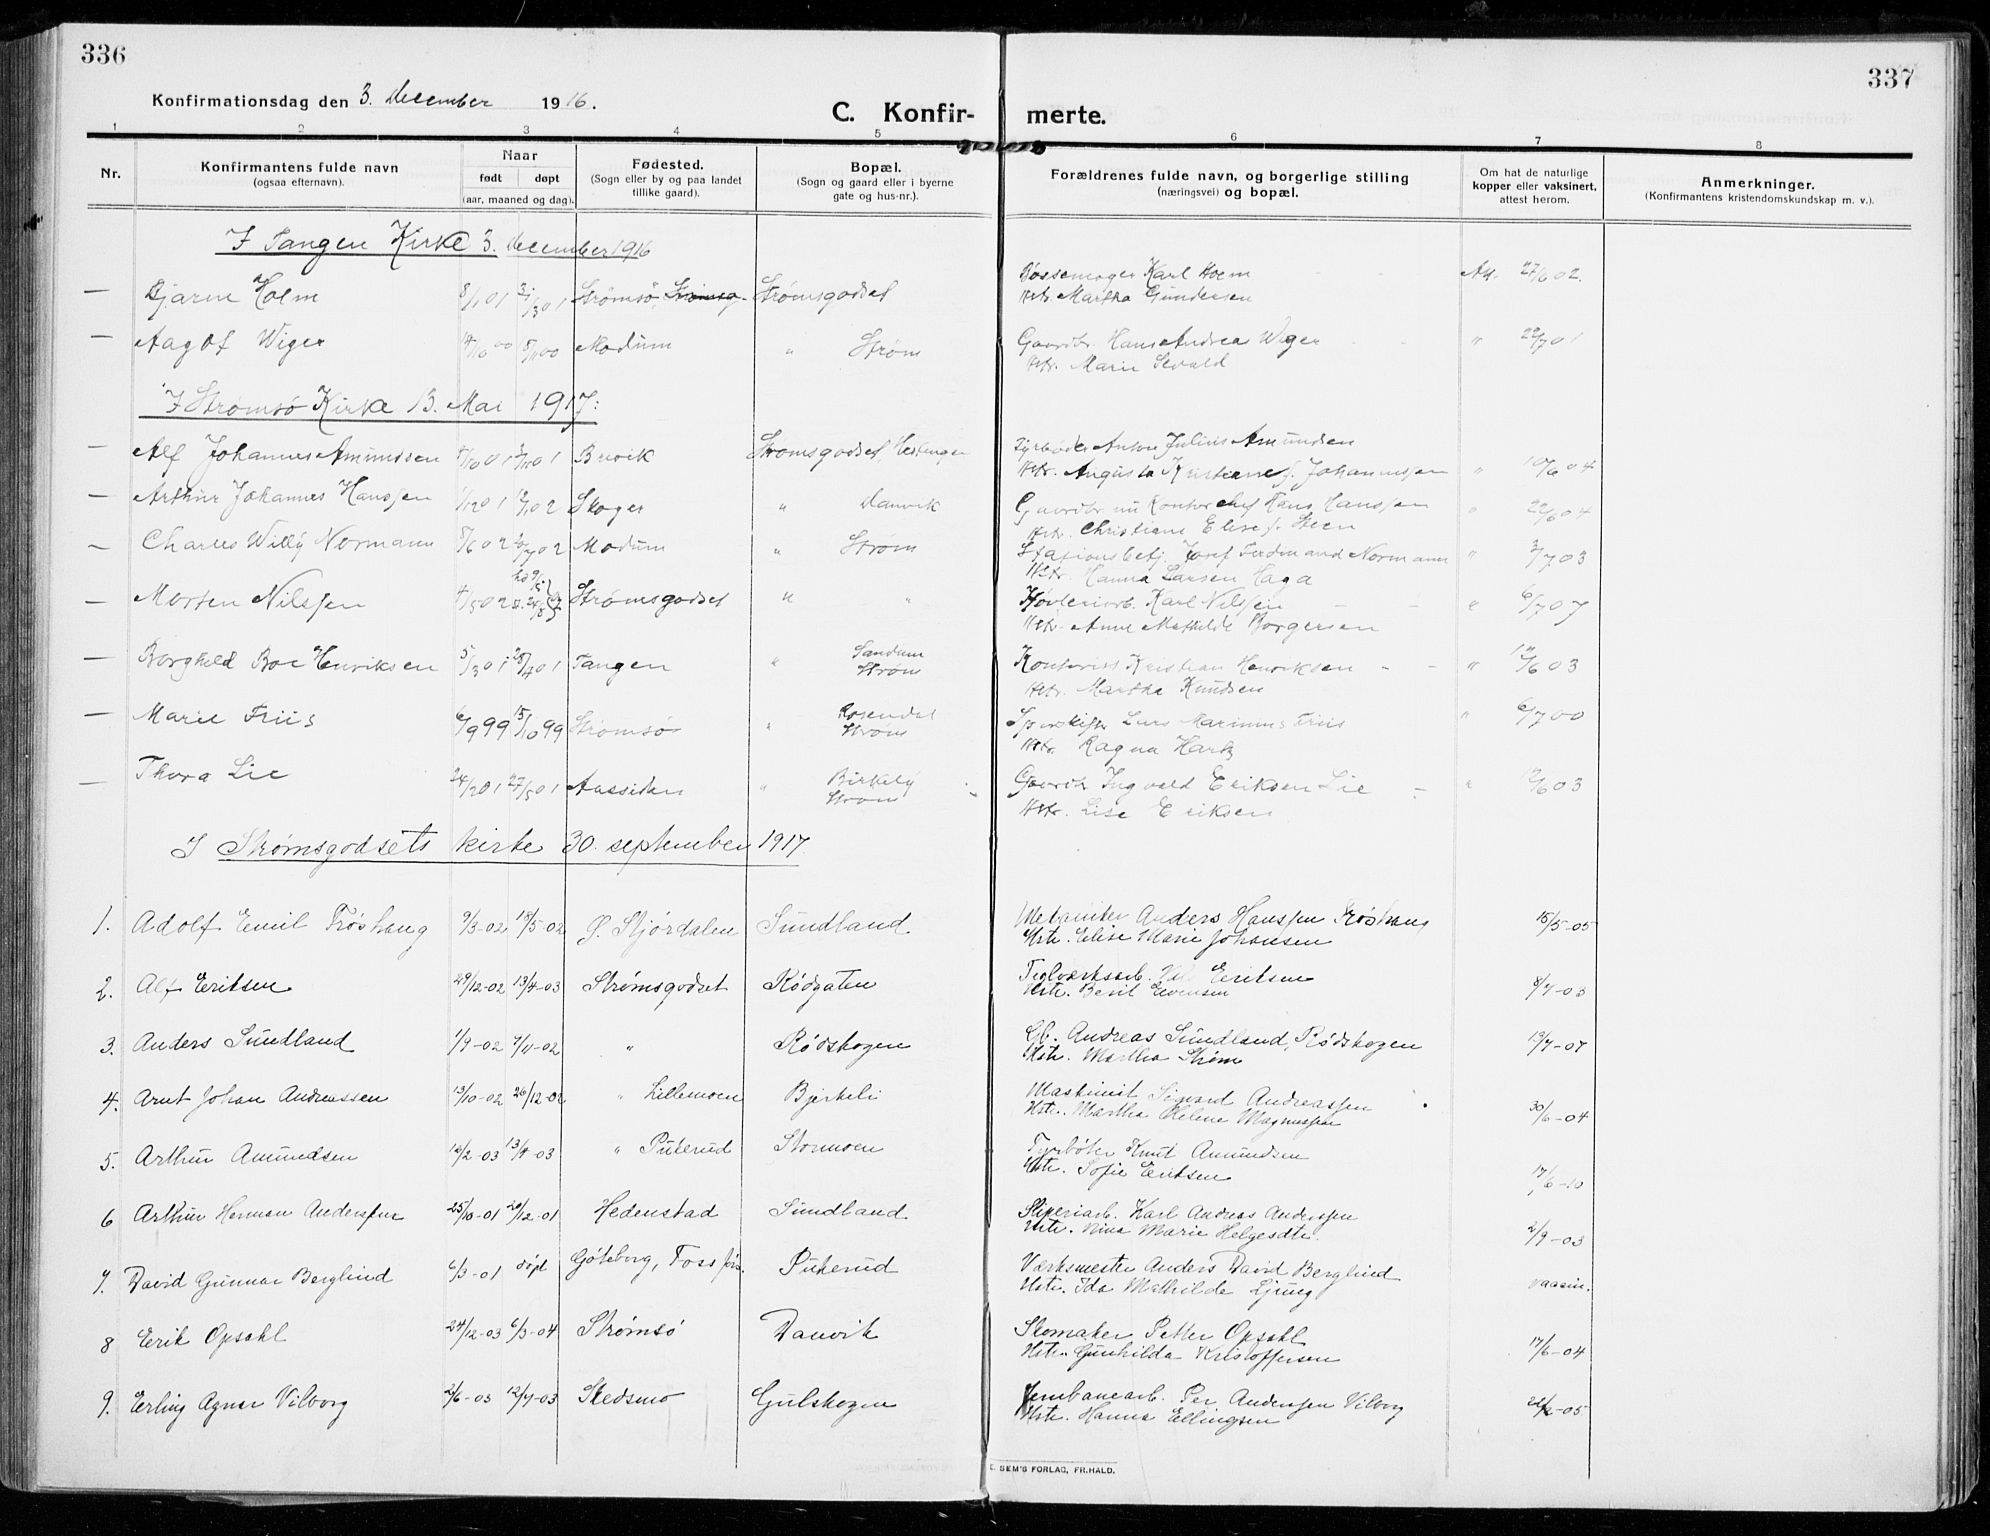 336
337
Konfirmationsdag den 3. December 1916.
C. Konfir- merte.
1 2 3 4 5 6 7 8
Nr.
Konfirmantens fulde navn
(ogsaa efternavn).
Naar
født døpt
(aar, maaned og dag).
Fødested.
(Sogn eller by og paa landet
tillike gaard).
Bopæl.
(Sogn og gaard eller i byerne
gate og hus-nr.).
Forældrenes fulde navn, og borgerlige stilling
(næringsvei) og bopæl.
Om hat de naturlige
kopper eller vaksinert,
attest herom.
Anmerkninger.
(Konfirmantens kristendomskundskap m. v.).
I Tangen Kirke 3. December 1916
— Bjarne Holm 8/1 01 Strømsø Strømsgodset Karl Holm 27/6 02
Hstr. Martha Gundersen
— Aagot Wiger 00 00 Modum " Strøm Gaardbr. Hans Andrea Wiger " 22/7 01
Hstr. Marie Sevald
I Strømsø Kirke 13. Mai 1917:
— Alf Johannes Amundsen 01 01 Brevik Strømsgodset, Fyrbøder Anton Julius Amundsen
Hstr. Augusta Kristiane f. Johannessen " 10/6 04
— Arthur Johannes Hanssen Skoger " Danvik Gaardbr. nu Kontorchef Hans Hanssen " 22/6 04
Hstr. Christiane Elise f. Steen
— Charles Willy Normann 8/6 02 02 Modum " Strøm Stationsbetj. Josef Ferdinand Normann " 3/7 03
Hstr. Hanna Larsen Haga
— Morten Nilssen 4/5 02 Strømsgodset " " Høvleriarb. Karl Nilssen " 6/7 07
Hstr. Anne Mathilde Borgersen
— Borghild Boe Henriksen 5/3 01 28/4 01 Tangen " Sandum Kontorist Kristian Henriksen " 03
Strøm Hstr. Martha Knudsen
— Marie Friis 6/9 99 15/10 99 Strømsø " Rosendal Lars Marinius Friis " 6/7 00
Strøm Hstr. Ragna Hartz
— Thora Lie 24/2 01 27/5 01 Aassiden " Birkely Gaardbr. Ingvald Eriksen Lie " 12/6 03
Strøm Hstr. Lise Eriksen
I Strømsgodsets kirke 30. september 1917.
1. Adolf Emil Frøshaug 9/3-02 18/5-02 Ø. Stjørdalen Sundland Anders Hanssen Frøshaug 15/5-05
Hstr. Elise Marie Johansen
2. Alf Eriksen 29/12-02 13/4-03 Strømsgodset Rødgaten Teglværksarb. Eriksen 8/7-03
Hstr. Beril Evensen
3. Anders Sundland 1/9-02 9/11-02 " Rødskogen Gb. Andreas Sundland, Rødskogen 13/7-07
Hstr. Martha Strøm
4. Arnt Johan Andreassen 13/10-02 26/12-02 " Lillemoen Bjerkeli Maskinist Sigvard Andreassen 30/6-04
Hstr. Martha Helene Magnussen
5. Arthur Amundsen 12/2-03 13/4-03 " Puterud Stormoen Fyrbøter Knut Amundsen
Hstr. Sofie Eriksen 17/6-10
6 Arthur Herman Anderssen 25/10-01 26/12-01 Hedenstad Sundland Sliperiarb. Karl Andreas Anderssen
Hstr. Nina Marie Helgesdtr. 2/9-03
7. David Gunnar Berglund 6/3-01 døpt Göteborg, Foss Puterud Værksmester Anders David Berglund
Hstr. Ida Mathilde Ljung vaccin.
8 Erik Opsahl 24/12-03 6/3-04 Strømsø Danvik Skomaker Petter Opsahl
Hstr. Gunhilda Kristoffersen 17/6-04
9. Erling Agnar Vilborg 2/6-03 12/7-03 Skedsmo Gulskogen Jernbanearb. Per Anderssen Vilborg
Hstr. Hanna Ellingsen -05
E. SEM'S FORLAG, FR.HALD.